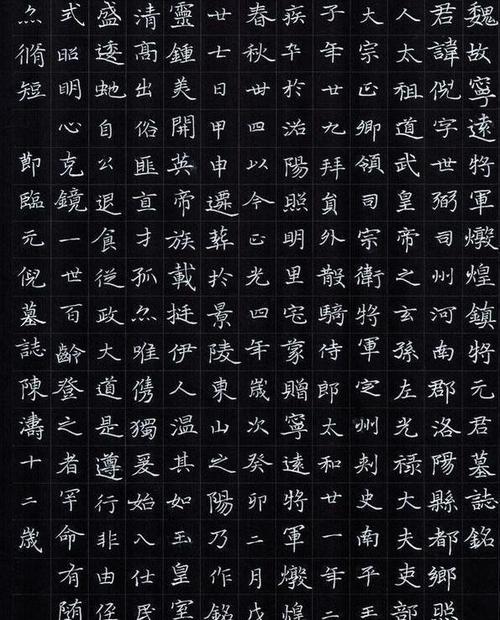 魏故寧遠將軍燉煌鎮將元君墓誌銘
君諱倪字世弼司州河南郡洛陽縣都鄉照
人太祖道武皇帝之玄孫左光祿大夫吏部
大宗正卿領司宗衛將軍定州刾史南平王
子年廿九拜員外散騎侍郎太和廿一年二
疾卒於洛陽照明里宅蒙贈寧遠將軍燉煌
春秋卌四以今正光四年歲次癸卯二月戊
廿七日甲申遷葬於景陵東山之陽乃作銘
靈鍾美開英帝族載挺伊人溫其如玉皇室
清高出俗匪亶才孤亦唯儁獨爰始入仕民
盛逶虵自公退食從政大道是遵行非由侄
式昭明心克鏡一世百齡登之者罕命有随
亦脩短 節臨元倪墓誌陳濤十二歲